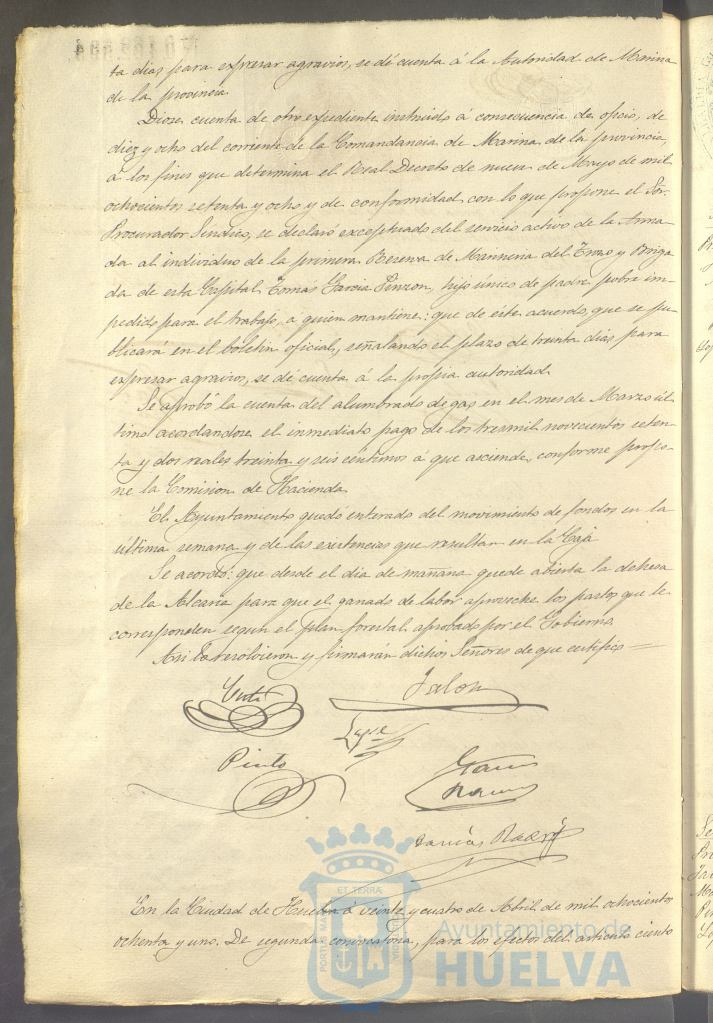 ta dias para expresar agravios, se dé cuenta á la Autoridad de Marina
de la provincia.
Diose cuenta de otro expediente instruido á consecuencia de oficio, de
diez y ocho del corriente de la Comandancia de Marina de la provincia,
á los fines que determina el Real Decreto de nueve de Mayo de mil
ochocientos setenta y ocho y de conformidad con lo que propone el Sor.
Procurador Sindico, se declaró exceptuado del servicio activo de la Arma-
da al individuo de la primera Reserva de Marineria del Trozo y Briga
da de esta Capital Tomas Garcia Pinzon, hijo único de padre pobre im-
pedido para el trabajo, a quien mantiene: que de éste acuerdo, que se pu-
blicará en el boletin oficial, señalando el plazo de treinta dias para
expresar agravios, se dé cuenta á la propia autoridad.
Se aprobó la cuenta del alumbrado de gas en el mes de Marzo úl-
timo acordandose el inmediato pago de los tresmil novecientos seten-
ta y dos reales treinta y seis centimos á que asciende, conforme propo-
ne la Comision de Hacienda.
El Ayuntamiento quedó enterado del movimiento de fondos en la
última semana y de las existencias que resultan en la Caja
Se acordó: que desde el dia de mañana quede abierta la dehesa
de la Alcaria para que el ganado de labor aproveche los pastos que le
corresponden segun el plan forestal aprobado por el Gobierno.
Asi lo resolvieron y firmarán dichos Señores de que certifico =
Jalon
Pinto
En la Ciudad de Huelva á veinte y cuatro de Abril de mil ochocientos
ochenta y uno. De segunda convocatoria, para los efectos del articulo ciento
PORTUS MARIS ET TERRÆ CUSTODIA
Ayuntamiento de
HUELVA